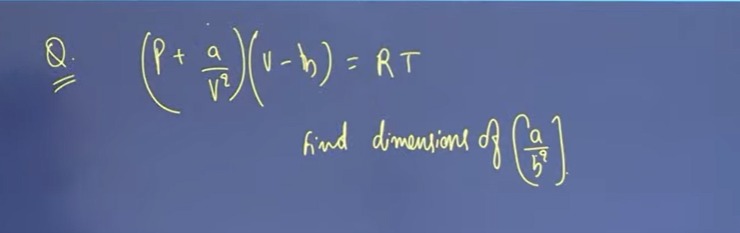 Q. (P + a/V²)(V - b) = RT
Find dimensions of [a/b²].